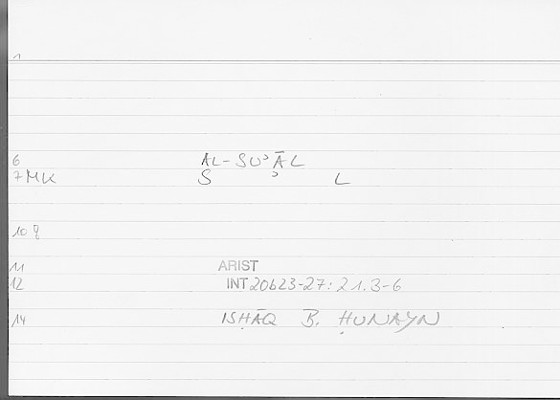 1
6 AL-SUʾĀL
7 MK S ʾ L
10
11 ARIST
12 INT 20b23-27: 21.3-6
14 ISḤĀQ B. ḤUNAYN